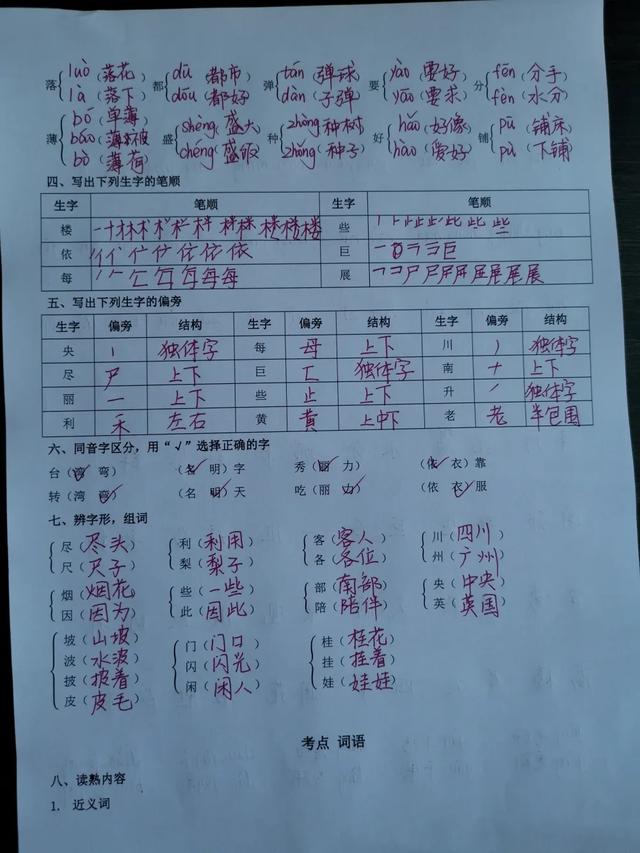 落 luò（落花） 都 dū（都市） 弹 tán（弹球） 要 yào（要好） 分 fēn（分手）
là（落下） dōu（都好） dàn（子弹） yāo（要求） fèn（水分）
薄 bó（单薄） 盛 shèng（盛大） 种 zhòng（种树） 好 hǎo（好像） 铺 pū（铺床）
báo（薄被） chéng（盛饭） zhǒng（种子） hào（爱好） pù（下铺）
bò（薄荷）
四、写出下列生字的笔顺
生字 笔顺 生字 笔顺
楼 些
依 巨
每 展
五、写出下列生字的偏旁
生字 偏旁 结构 生字 偏旁 结构 生字 偏旁 结构
央 丨 独体字 每 母 上下 川 丿 独体字
尽 尸 上下 巨 匚 独体字 南 十 上下
丽 一 上下 些 止 上下 升 丿 独体字
利 禾 左右 黄 黄 上中下 老 老 半包围
六、同音字区分，用“√”选择正确的字
台（湾 弯） （名 明）字 秀（丽 力） （依 衣）靠
转（湾 弯） （名 明）天 吃（丽 力） （依 衣）服
七、辨字形，组词
尽（尽头） 利（利用） 客（客人） 川（四川）
尺（尺子） 梨（梨子） 各（各位） 州（广州）
烟（烟花） 些（一些） 部（南部） 央（中央）
因（因为） 此（因此） 陪（陪伴） 英（英国）
坡（山坡） 门（门口） 桂（桂花）
波（水波） 闪（闪光） 挂（挂着）
披（披着） 闲（闲人） 娃（娃娃）
皮（皮毛）
考点 词语
八、读熟内容
1. 近义词